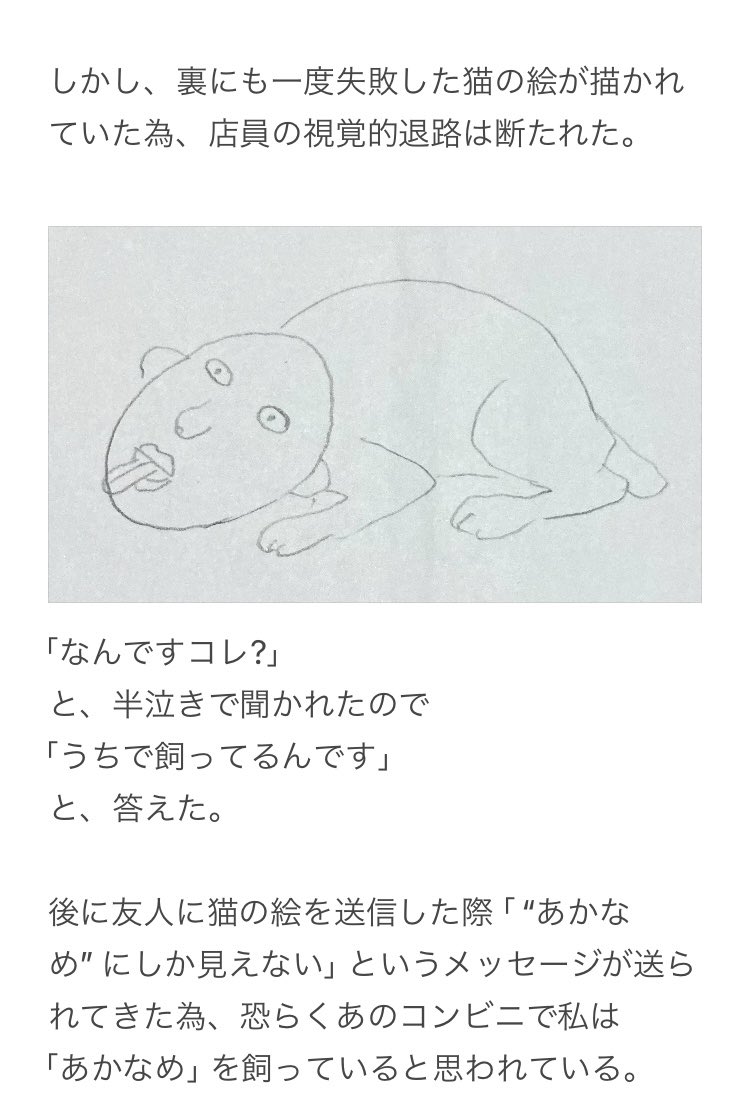 しかし、裏にも一度失敗した猫の絵が描かれ
ていた為、店員の視覚的退路は断たれた。
「なんですコレ?」
と、半泣きで聞かれたので
「うちで飼ってるんです」
と、答えた。
後に友人に猫の絵を送信した際「 “あかな
め” にしか見えない」というメッセージが送ら
れてきた為、恐らくあのコンビニで私は
「あかなめ」を飼っていると思われている。